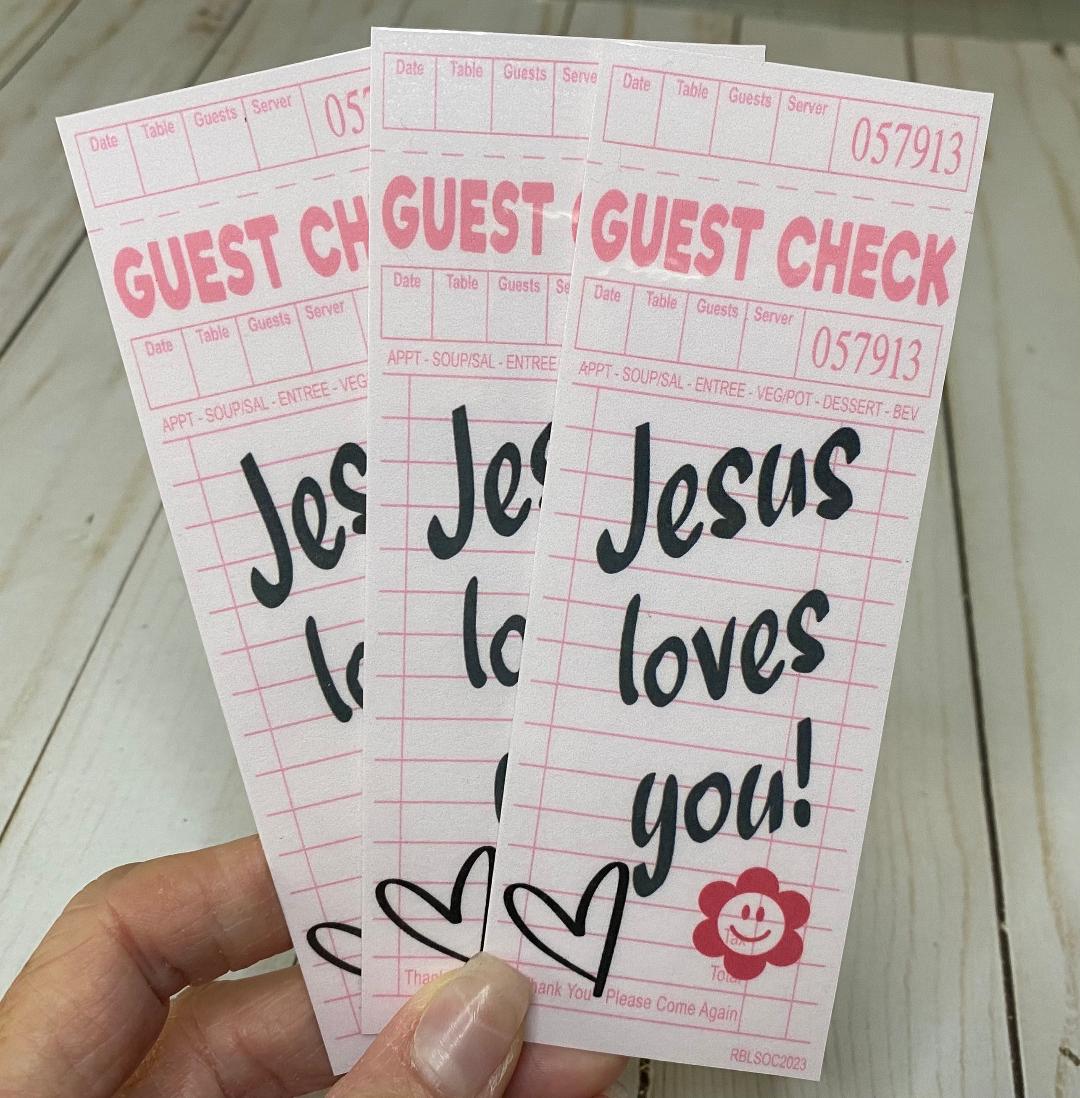 Date Table Guests Server 057
GUEST CH
Date Table Guests Server
APPT - SOUP/SAL - ENTREE - VEG
Jes
lo
Date Table Guests Serve
GUEST
Date Table Guests Se
APPT - SOUP/SAL - ENTREE
Jes
lo
Thank
Date Table Guests Server 057913
GUEST CHECK
Date Table Guests Server 057913
APPT - SOUP/SAL - ENTREE - VEG/POT - DESSERT - BEV
Jesus
loves
you!
Tax
Total
Thank You - Please Come Again
RBLSOC2023